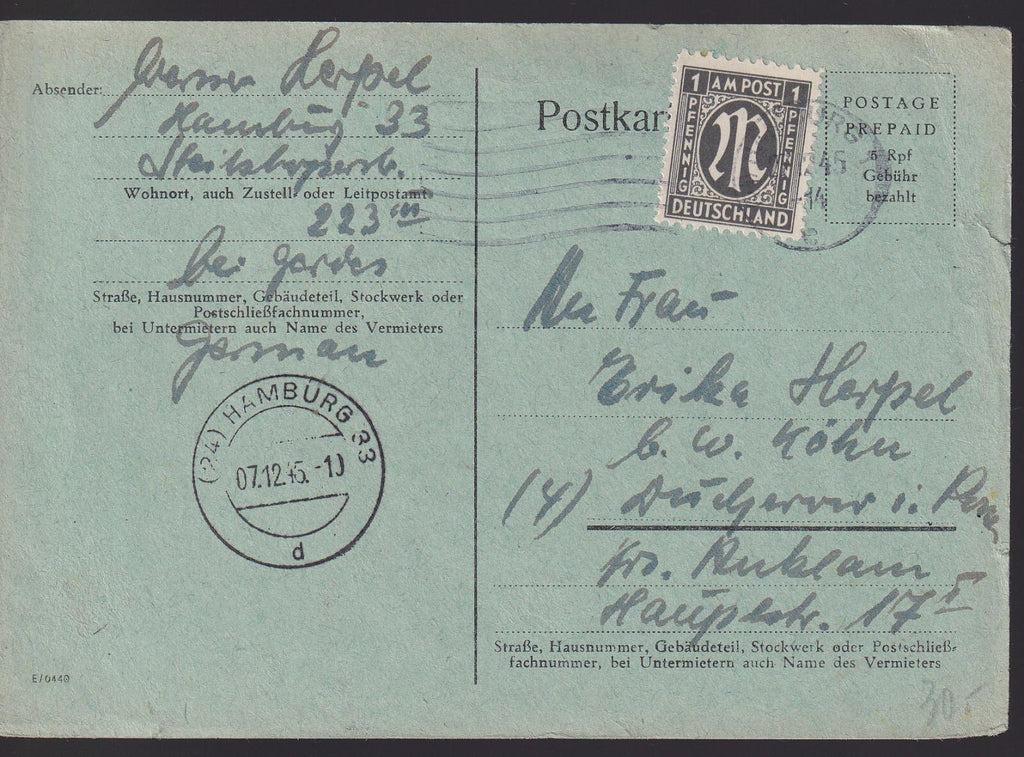 Absender:
Werner Herpel
Hamburg 33
Wohnort, auch Zustell- oder Leitpostamt
223 III
bei Gerdes
Straße, Hausnummer, Gebäudeteil, Stockwerk oder
Postschließfachnummer,
bei Untermietern auch Name des Vermieters
German
(24) HAMBURG 33
07.12.45.-10
d
E/0440
Postkar
1 AM POST 1
PFENNIG
PFENNIG
DEUTSCHLAND
POSTAGE
PREPAID
5 Rpf
Gebühr
bezahlt
An Frau
Erika Herpel
b. W. Köhn
(4) Ducherow i. Pom
Krs. Anklam
Hauptstr. 17 I
Straße, Hausnummer, Gebäudeteil, Stockwerk oder Postschließ-
fachnummer, bei Untermietern auch Name des Vermieters
30.-